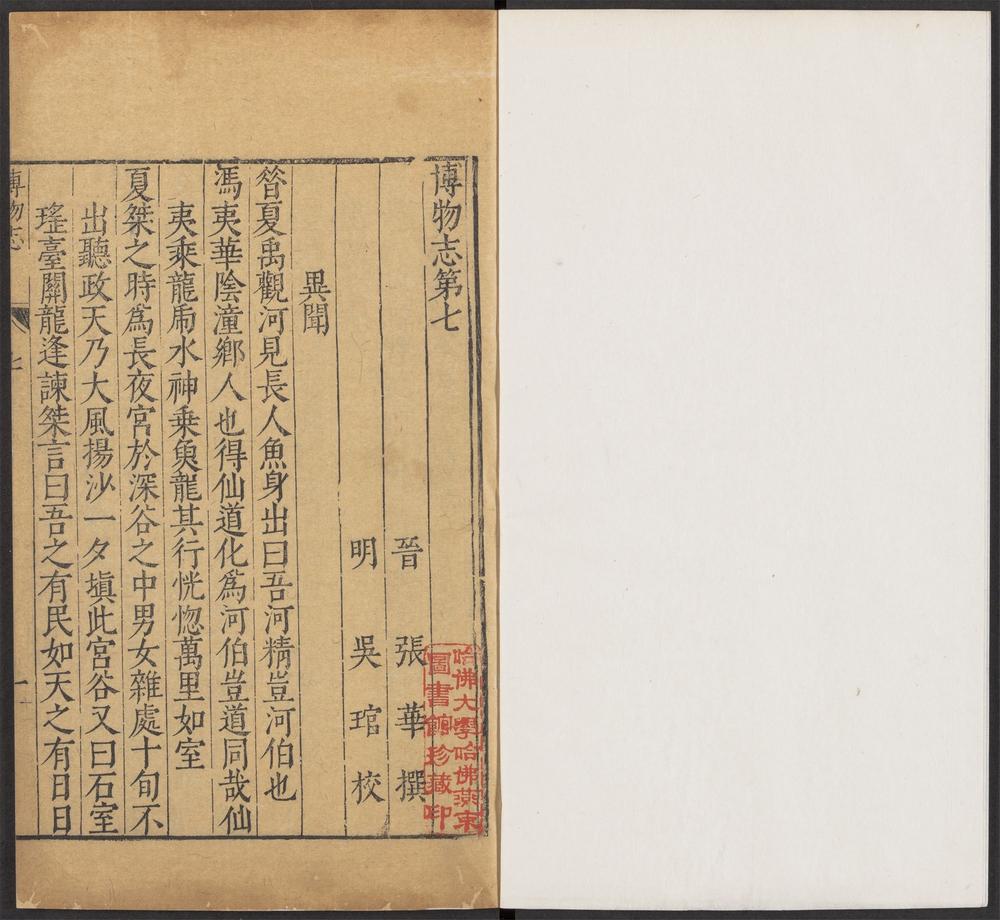 博物志第七
晉 張 華 撰
明 吳 琯 校
異聞
昝夏禹觀河見長人魚身出曰吾河精豈河伯也
馮夷華陰潼鄉人也得仙道化爲河伯豈道同哉仙
夷乘龍虎水神乗魚龍其行恍惚萬里如室
夏桀之時爲長夜宮於深谷之中男女雜處十旬不
出聽政天乃大風揚沙一夕塡此宮谷又曰石室
瑤臺關龍逢諫桀言曰吾之有民如天之有日日
博物志
七
一
哈佛大學哈佛燕京
圖書館珍藏印